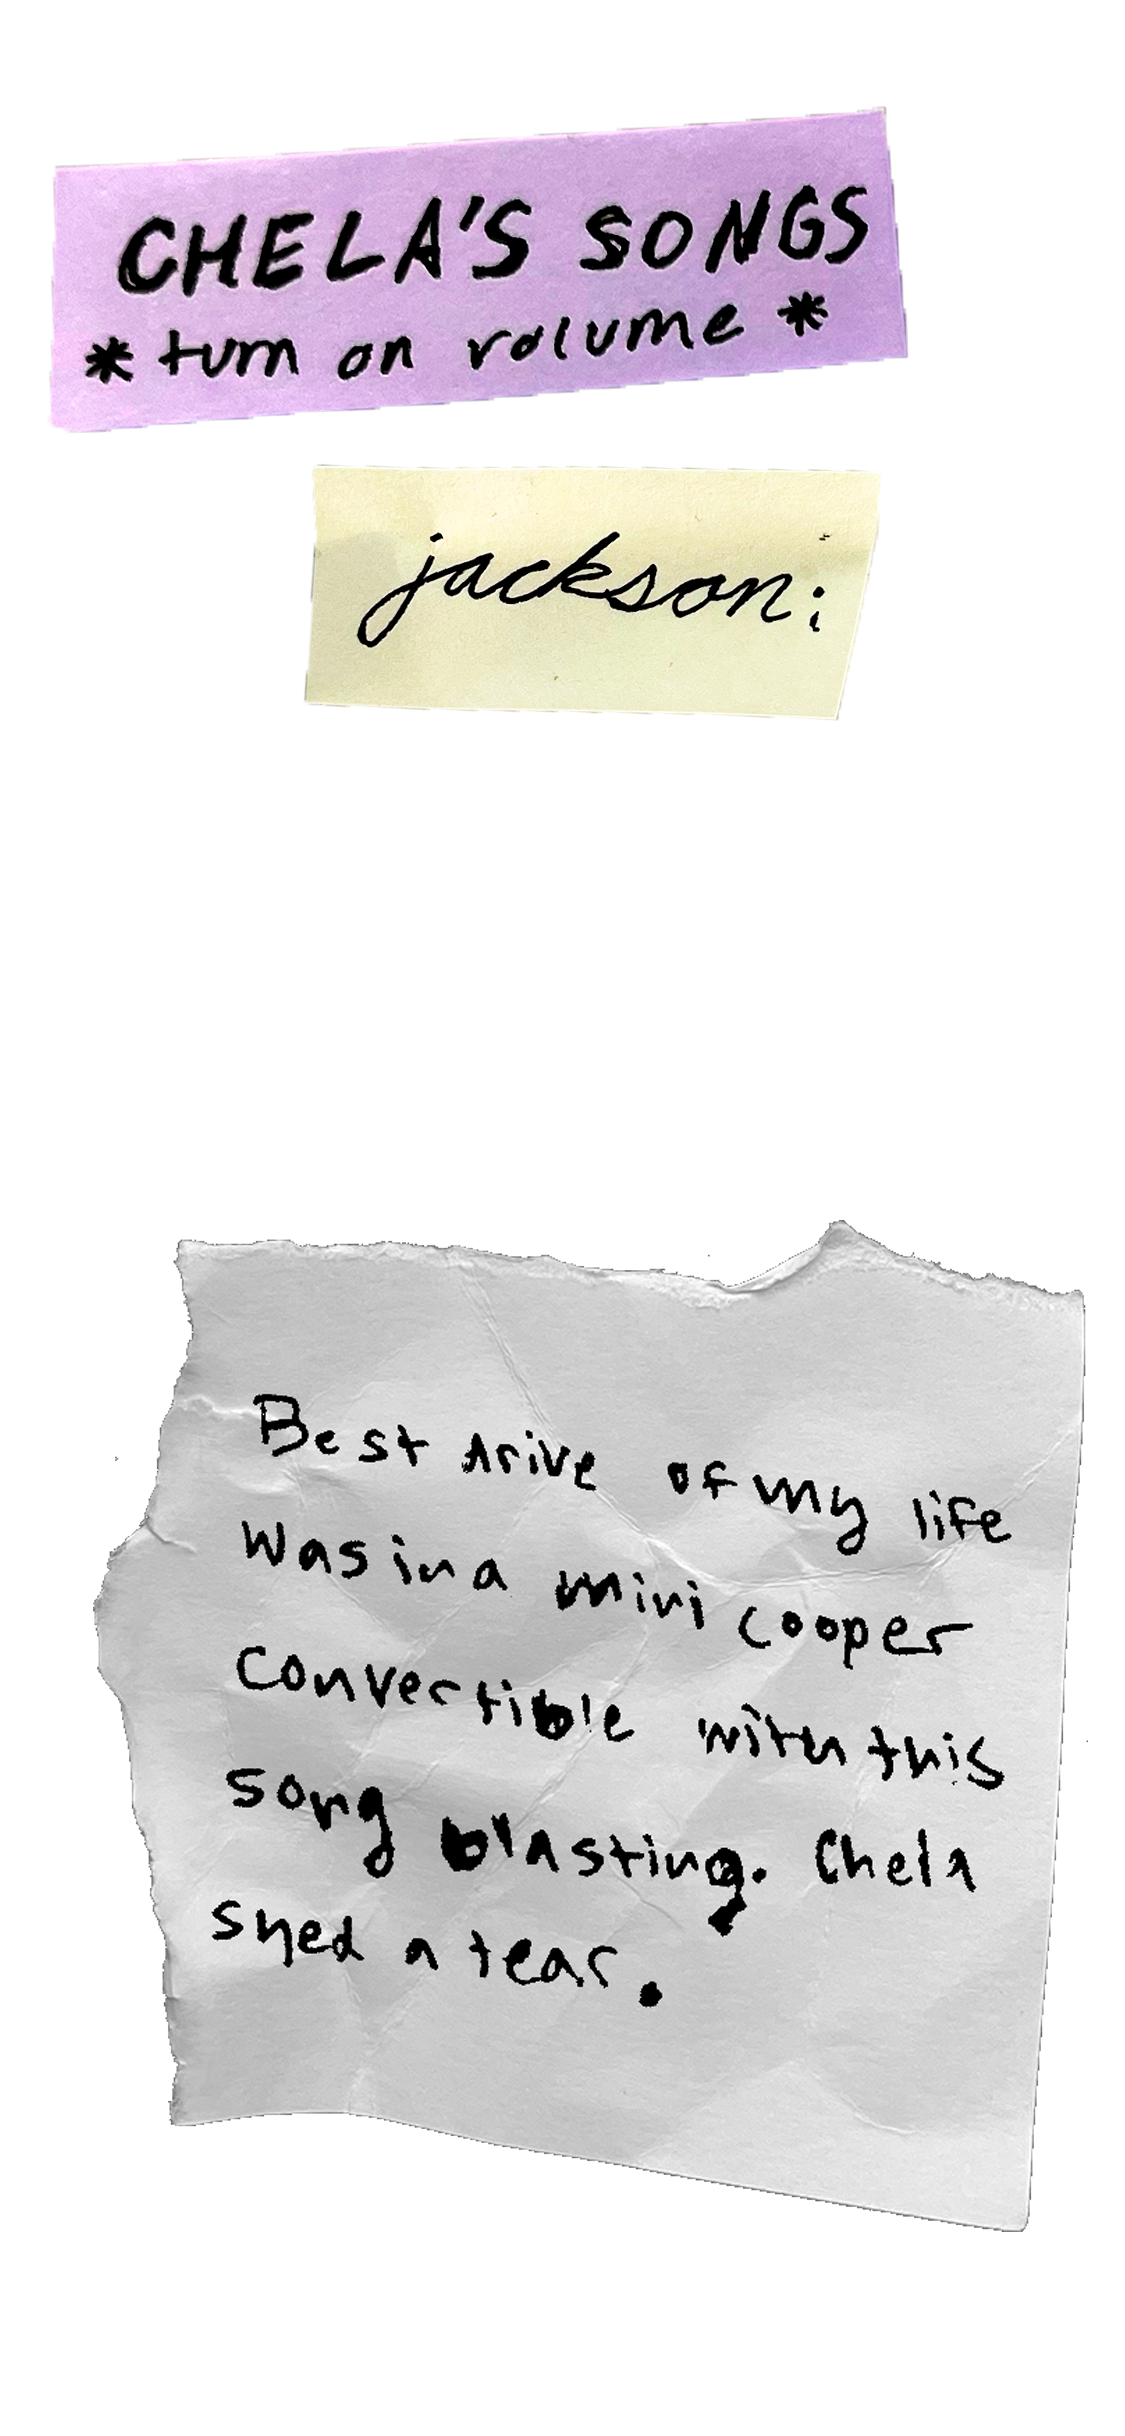 CHELA'S SONGS
* turn on volume *
jackson:
Best drive of my life
was in a mini cooper
convertible with this
song blasting. Chela
shed a tear.